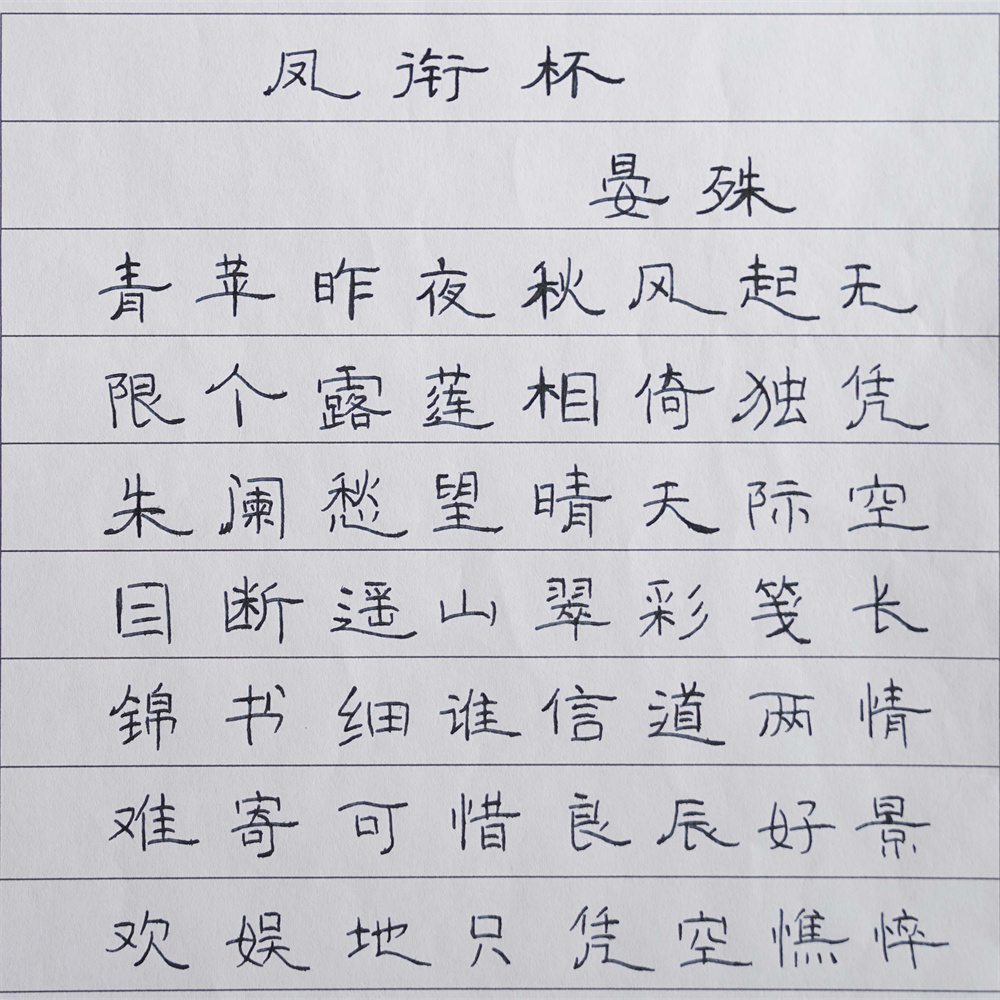 凤衔杯
晏殊
青苹昨夜秋风起无
限个露莲相倚独凭
朱阑愁望晴天际空
目断遥山翠彩笺长
锦书细谁信道两情
难寄可惜良辰好景
欢娱地只凭空憔悴